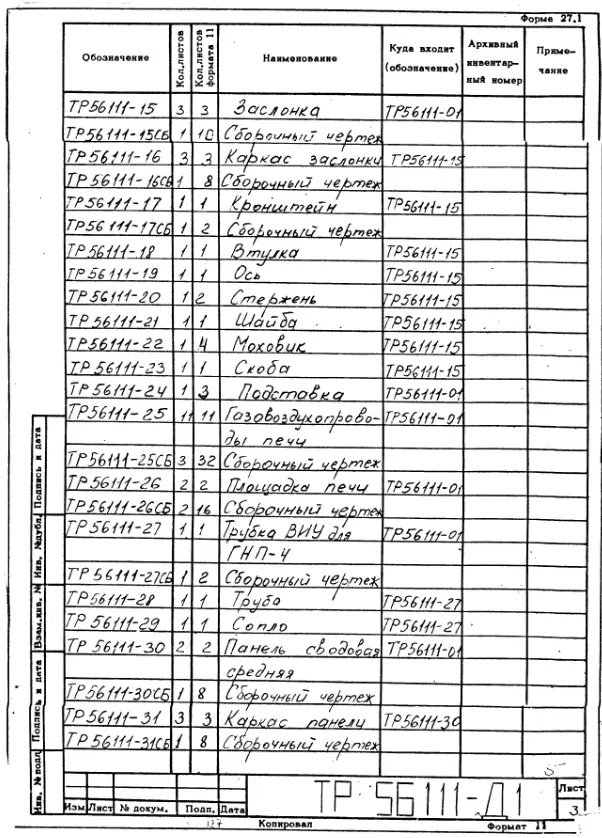 Форма 27.1
Обозначение Кол.листов Кол.листов формата 11 Наименование Куда входит (обозначение) Архивный инвентарный номер Примечание
ТР56111-15 3 3 Заслонка ТР56111-01
ТР56111-15СБ 1 10 Сборочный чертеж
ТР56111-16 3 3 Каркас заслонки ТР56111-15
ТР56111-16СБ 1 8 Сборочный чертеж
ТР56111-17 1 1 Кронштейн ТР56111-15
ТР56111-17СБ 1 2 Сборочный чертеж
ТР56111-18 1 1 Втулка ТР56111-15
ТР56111-19 1 1 Ось ТР56111-15
ТР56111-20 1 2 Стержень ТР56111-15
ТР56111-21 1 1 Шайба ТР56111-15
ТР56111-22 1 4 Моховик ТР56111-15
ТР56111-23 1 1 Скоба ТР56111-15
ТР56111-24 1 3 Подставка ТР56111-01
ТР56111-25 11 11 Газовоздухопрово- ТР56111-01
ды печи
ТР56111-25СБ 3 32 Сборочный чертеж
ТР56111-26 2 2 Площадка печи ТР56111-01
ТР56111-26СБ 2 16 Сборочный чертеж
ТР56111-27 1 1 Трубка ВИУ для ТР56111-01
ГНП-4
ТР56111-27СБ 1 2 Сборочный чертеж
ТР56111-28 1 1 Труба ТР56111-27
ТР56111-29 1 1 Сопло ТР56111-27
ТР56111-30 2 2 Панель сводовая ТР56111-01
средняя
ТР56111-30СБ 1 8 Сборочный чертеж
ТР56111-31 3 3 Каркас панели ТР56111-30
ТР56111-31СБ 1 8 Сборочный чертеж
Подпись и дата
Инв. №дубл.
Взам.инв. №
Подпись и дата
Инв. №подл
ТР 56111-Д1
Лист
3
Изм Лист № докум. Подп. Дата
Копировал Формат 11